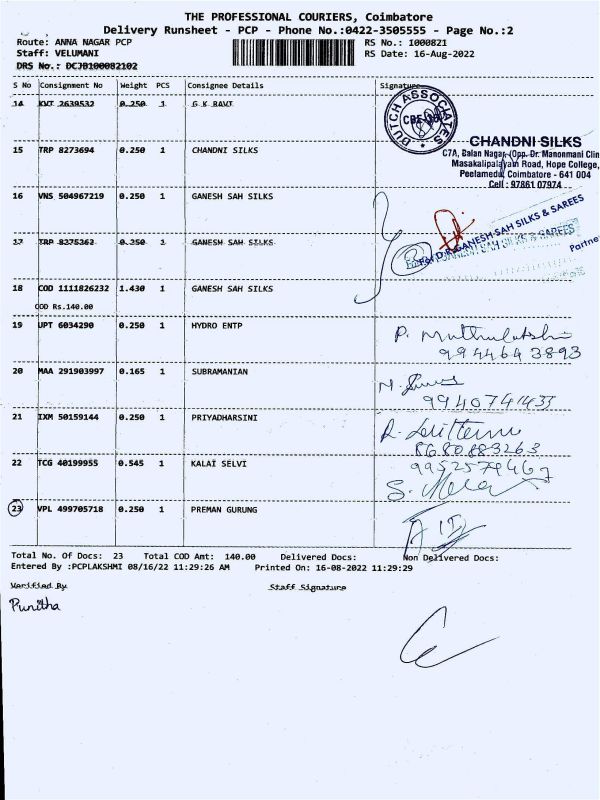 THE PROFESSIONAL COURIERS, Coimbatore
Delivery Runsheet - PCP - Phone No.:0422-3505555 - Page No.:2
Route: ANNA NAGAR PCP RS No.: 1000821
Staff: VELUMANI RS Date: 16-Aug-2022
DRS No.: DCJB100082102
S No Consignment No Weight PCS Consignee Details Signature
14 KVT 2639532 0.250 1 G K RAVI
DUTCH ASSOCIATES
CBE-38
CHANDNI SILKS
15 TRP 8273694 0.250 1 CHANDNI SILKS
C7A, Balan Nagar, (Opp. Dr. Manonmani Clin
Masakalipalayam Road, Hope College,
Peelamedu, Coimbatore - 641 004
Cell : 97861 07974
16 VNS 504967219 0.250 1 GANESH SAH SILKS
GANESH SAH SILKS & SAREES
17 TRP 8275362 0.250 1 GANESH SAH SILKS
GANESH SAH SILKS & SAREES
Partne
18 COD 1111826232 1.430 1 GANESH SAH SILKS
COD Rs.140.00
19 UPT 6034290 0.250 1 HYDRO ENTP
P. Muthulakshi
9944643893
20 MAA 291903997 0.165 1 SUBRAMANIAN
9940741433
21 IXM 50159144 0.250 1 PRIYADHARSINI
8680883263
22 TCG 40199955 0.545 1 KALAI SELVI
9952579467
23 VPL 499705718 0.250 1 PREMAN GURUNG
Total No. Of Docs: 23 Total COD Amt: 140.00 Delivered Docs: Non Delivered Docs:
Entered By :PCPLAKSHMI 08/16/22 11:29:26 AM Printed On: 16-08-2022 11:29:29
Verified By Staff Signature
Punitha